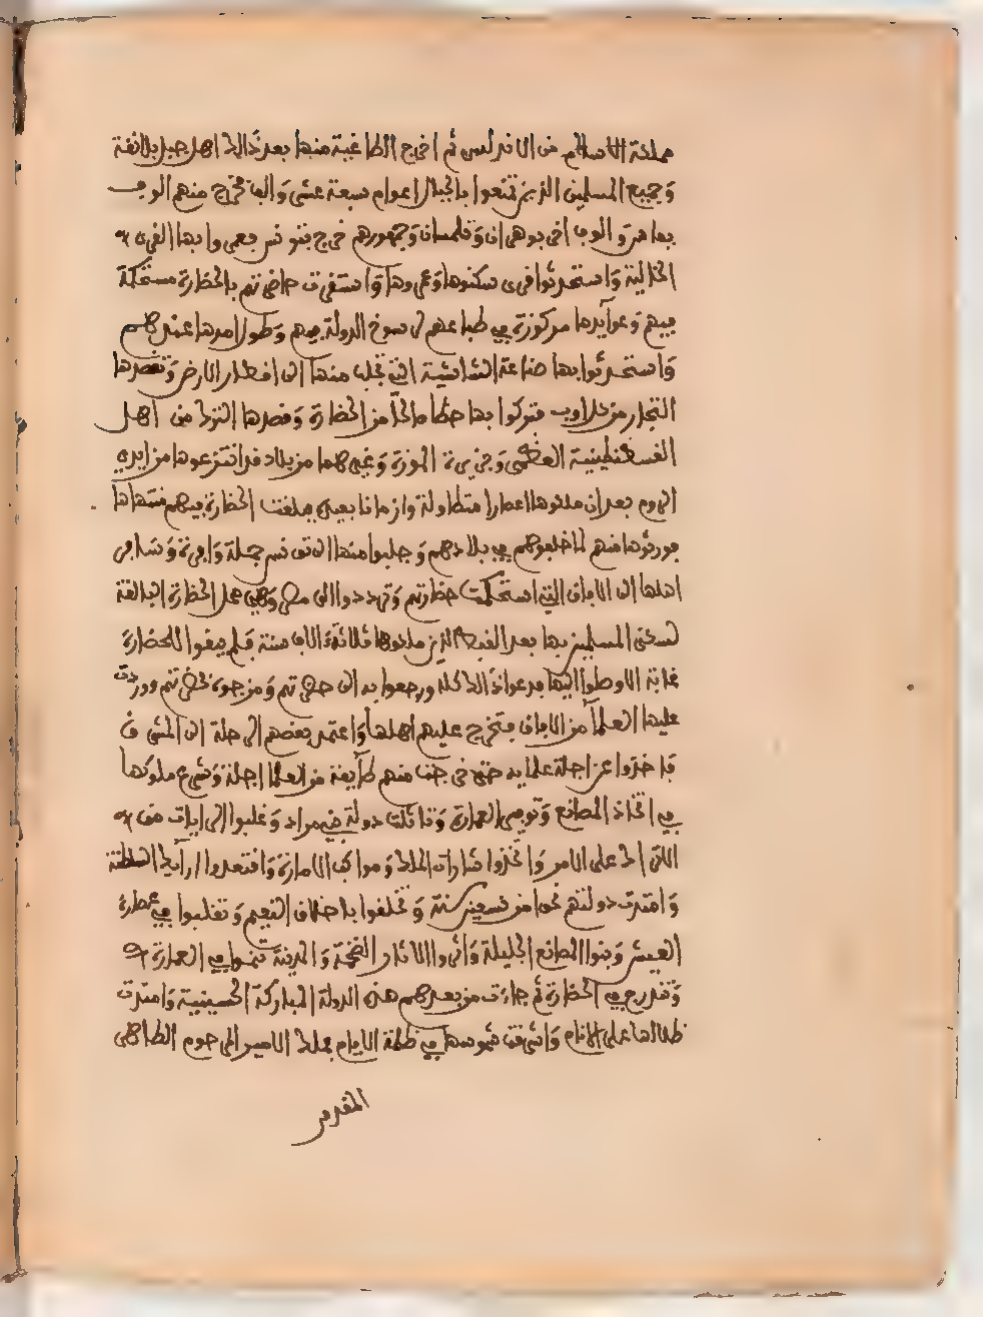 مملكة الاسلام من الاندلس ثم اخرج الطاغية منها بعد ذالك اهل جبل بلانقة
وَجميع المسلمين الذين تمنعوا بالجبال اعوام سبعة عشر وَالف فخرج منهم الوف
بفاس وَالوف اخر بوهران وَتلمسان وَجمهورهم خرج بتونس فعمروا بها القرى
الخالية وَاستحدثوا قرى سكنوها وَعمروها وَاستقرت حاضرتهم بالحضارة مستحكمة
فيهم وَعوايدها مركوزة في طباعهم لرسوخ الدولة فيهم وَطول امدها عندهم
وَاستحدثوا بها صناعة الشاشية التي تجلب منها الى اقطار الارض وَتقصدها
التجار من كل اوب فتركوا بها حظا صالحا من الحضارة وَقصدها الترك من اهل
القسطنطينية العظمى وَجزيرة المورة وَغيرهما من بلاد قد انتزعوها من ايدي
الروم بعد ان ملكوها اعصارا متطاولة وازمانا بعيدة بلغت الحضارة فيهم منتهاها
فورثوها منهم لما خلفوهم في بلادهم وَجلبوا منها الى تونس جملة وَافرة وَسافر
اهلها الى الافاق التي استحكمت حضارتهم وَترددوا الى مصر وَهي محل الحضارة البالغة
لسكنى المسلمين بها بعد القبط الذين ملكوها ثلاثة ءالاف سنة فلم يبقوا للحضارة
غاية الا وصلوا اليها فدعوا ذالك كله ورجعوا به الى حضرتهم وَمزجوه بحضرتهم ووردت
عليها العلما من الافاق فتخرج عليهم اهلها وَاعتمد بعضهم الرحلة الى المشرق
فاخذوا عن اجلة علمايه فتخرجت منهم طايفة من العلما اجلة وَشرع ملوكها
في اتخاذ المصانع وَتوفير العمارة وَتاثلت دولة بني مراد وَغلبوا الرايات من
الاتراك على الامر وَاتخذوا شارات الملك وَمواكب الامارة وَاقتعدوا ارايك السلطنة
وَامتدت دولتهم نحوا من تسعين سنة وَتخلفوا باخلاف النعيم وَتقلبوا في غضارة
العيش وَبنوا المصانع الجليلة وَاثروا الاثار الضخمة وَالمدينة تنموا في العمارة
وَتتدرج في الحضارة ثم جاءت من بعدهم هذه الدولة المباركة الحسينية وَامتدت
ظلالها على الانام وَاشرقت شموسها في ظلمة الايام بملك الامير المرحوم الطاهر
المقدس